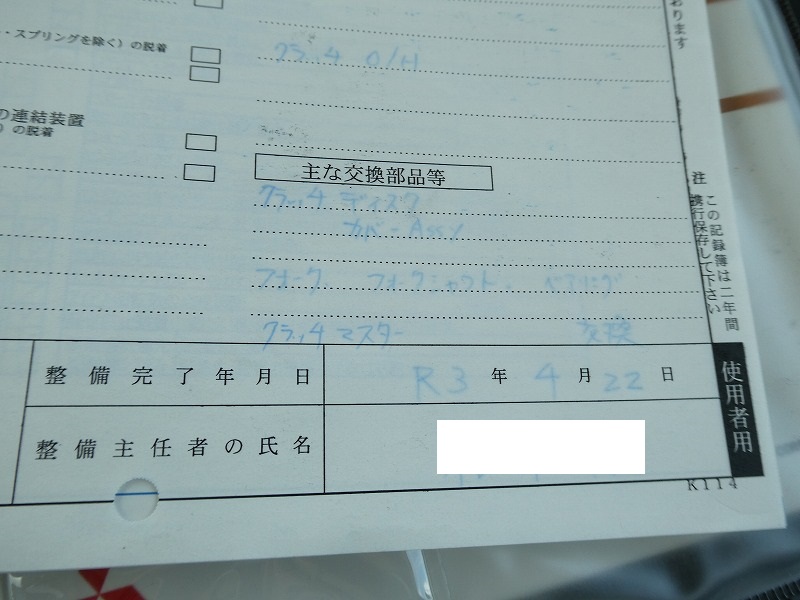 おります
・スプリングを除く）の脱着
クラッチ O/H
の連結装置
）の脱着
主な交換部品等
クラッチ ディスク
カバーAssy
フォーク. フォークシャフト. ベアリング
クラッチマスター 交換
注 この記録簿は二年間
携行保存して下さい
整備完了年月日 R3年4月22日
整備主任者の氏名
使用者用
K114